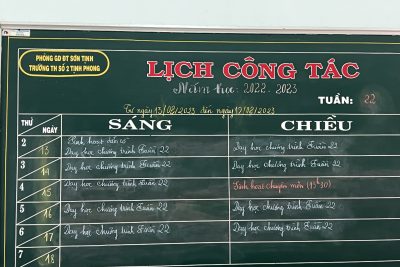 PHÒNG GD ĐT SƠN TỊNH
TRƯỜNG TH SỐ 2 TỊNH PHONG
LỊCH CÔNG TÁC
Năm học: 2022-2023
TUẦN: 22
Từ ngày 13/02/2023 đến ngày 17/02/2023
THỨ NGÀY SÁNG CHIỀU
2 13 Sinh hoạt dưới cờ
Dạy học chương trình Tuần 22 Dạy học chương trình Tuần 22
3 14 Dạy học chương trình Tuần 22 Dạy học chương trình Tuần 22
4 15 Dạy học chương trình Tuần 22 Sinh hoạt chuyên môn (13h30)
5 16 Dạy học chương trình Tuần 22 Dạy học chương trình Tuần 22
6 17 Dạy học chương trình Tuần 22 Dạy học chương trình Tuần 22
7 18